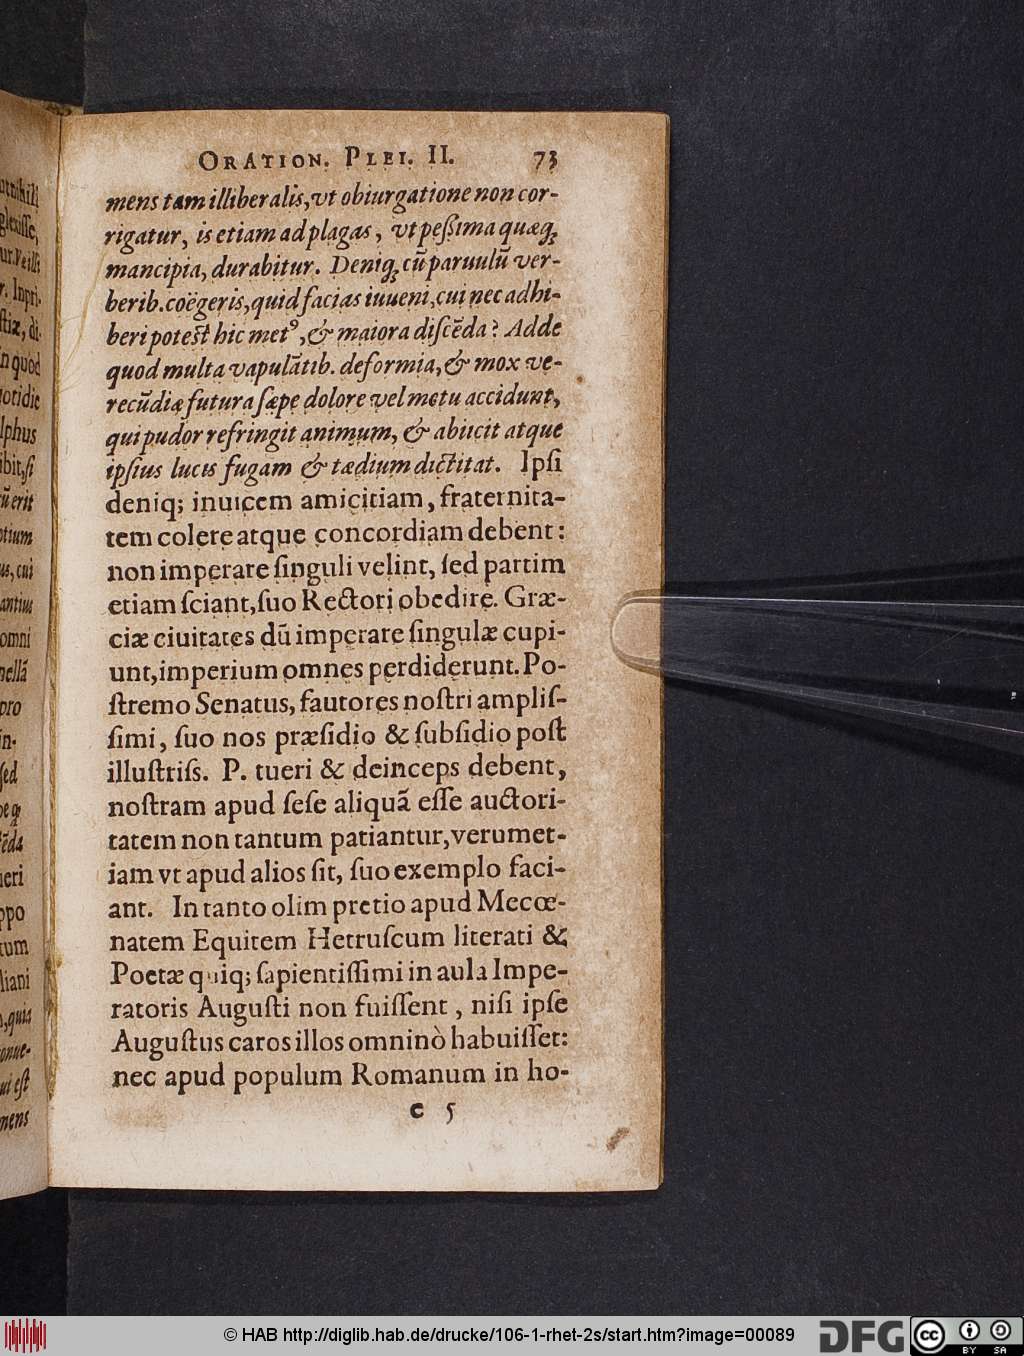 ORATION. PLEI. II. 73
mens tam illiberalis, vt obiurgatione non cor-
rigatur, is etiam ad plagas, vt peſsima quæq́;
mancipia, durabitur. Deniq́; cũ paruulũ ver-
berib. coëgeris, quid facias iuueni, cui nec adhi-
beri poteſt hic metꝰ, & maiora diſcẽda? Adde
quod multa vapulãtib. deformia, & mox ve-
recũdiæ futura ſæpe dolore vel metu accidunt,
qui pudor refringit animum, & abiicit atque
ipſius lucis fugam & tædium dictitat. Ipſi
deniq; inuicem amicitiam, fraternita-
tem colere atque concordiam debent:
non imperare ſinguli velint, ſed partim
etiam ſciant, ſuo Rectori obedire. Græ-
ciæ ciuitates dũ imperare ſingulæ cupi-
unt, imperium omnes perdiderunt. Po-
ſtremo Senatus, fautores noſtri ampliſ-
ſimi, ſuo nos præſidio & ſubſidio poſt
illuſtriſs. P. tueri & deinceps debent,
noſtram apud ſeſe aliquã eſſe auctori-
tatem non tantum patiantur, verumet-
iam vt apud alios ſit, ſuo exemplo faci-
ant. In tanto olim pretio apud Mecœ-
natem Equitem Hetruſcum literati &
Poetæ quiq; ſapientiſſimi in aula Impe-
ratoris Auguſti non fuiſſent, niſi ipſe
Auguſtus caros illos omninò habuiſſet:
nec apud populum Romanum in ho-
e 5
© HAB http://diglib.hab.de/drucke/106-1-rhet-2s/start.htm?image=00089
DFG
cc
BY SA